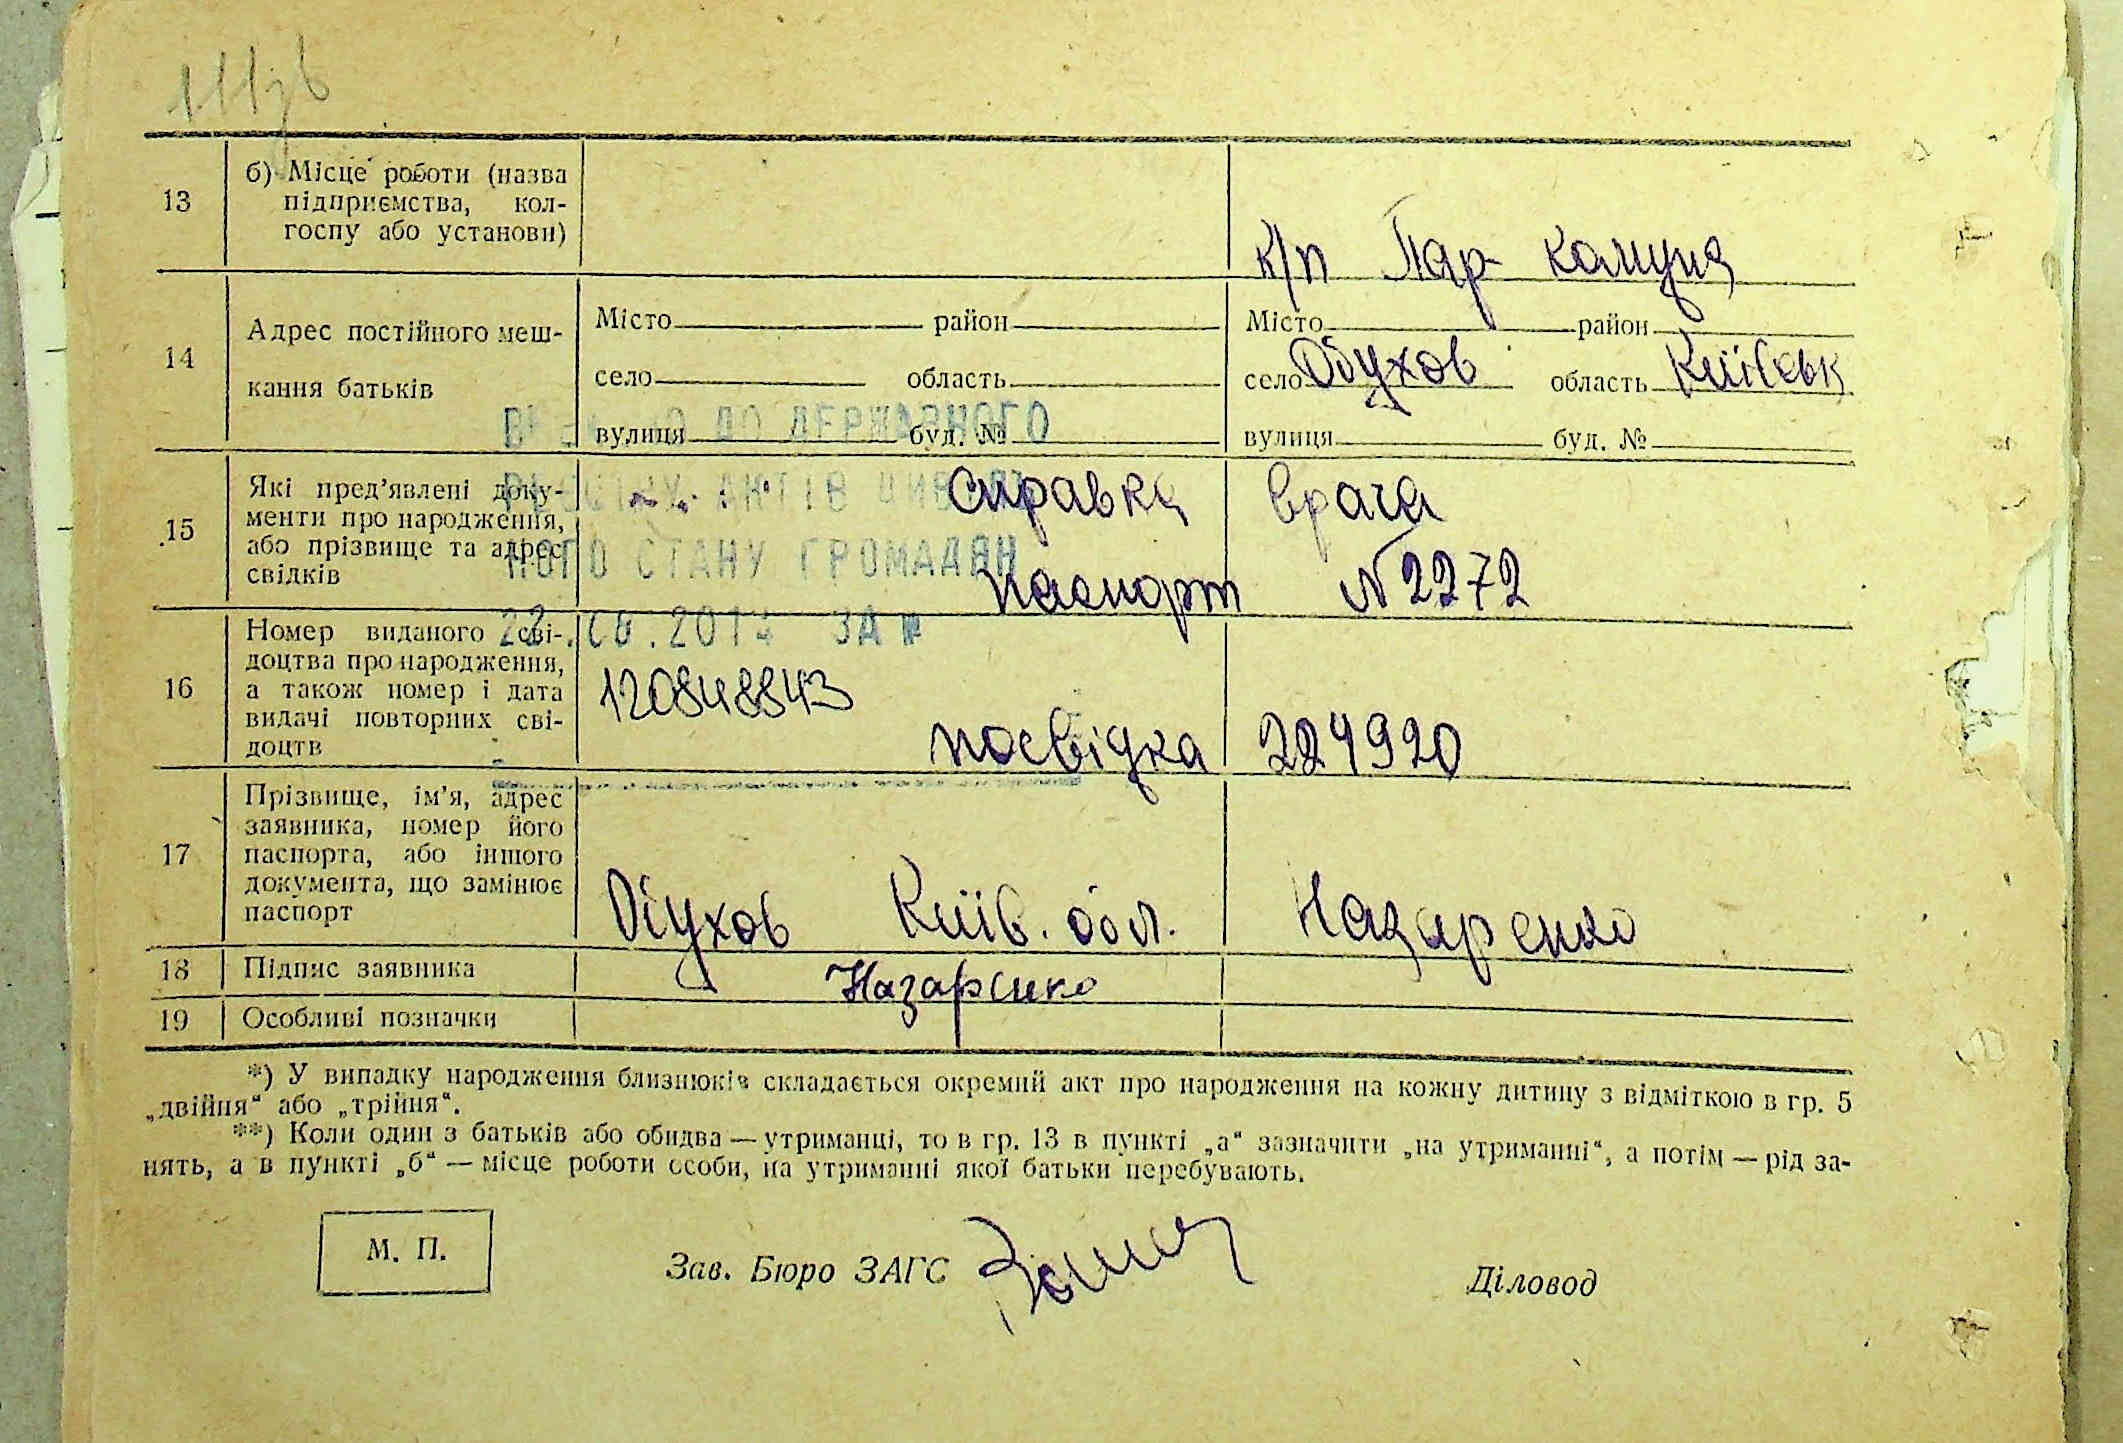 13
б) Місце роботи (назва
підприємства, кол-
госпу або установи)
к/п Пар комуна
14
Адрес постійного меш-
кання батьків
Місто район
село область
вулиця буд. №
Місто район
село Обухов область Київськ
вулиця буд. №
15
Які пред’явлені доку-
менти про народження,
або прізвище та адрес
свідків
справка врача
паспорт №2272
ДО ДЕРЖАВНОГО
АКТІВ
СТАНУ ГРОМАДЯН
ЗА №
16
Номер виданого сві-
доцтва про народження,
а також номер і дата
видачі повторних сві-
доцтв
120848843
посвідка 224920
17
Прізвище, ім’я, адрес
заявника, номер його
паспорта, або іншого
документа, що замінює
паспорт
Обухов Київ. обл. Назаренко
18 Підпис заявника Назаренко
19 Особливі позначки
*) У випадку народження близнюків складається окремий акт про народження на кожну дитину з відміткою в гр. 5
„двійня“ або „трійня“.
**) Коли один з батьків або обидва — утриманці, то в гр. 13 в пункті „а“ зазначити „на утриманні“, а потім — рід за-
нять, а в пункті „б“ — місце роботи особи, на утриманні якої батьки перебувають.
М. П.
Зав. Бюро ЗАГС
Діловод